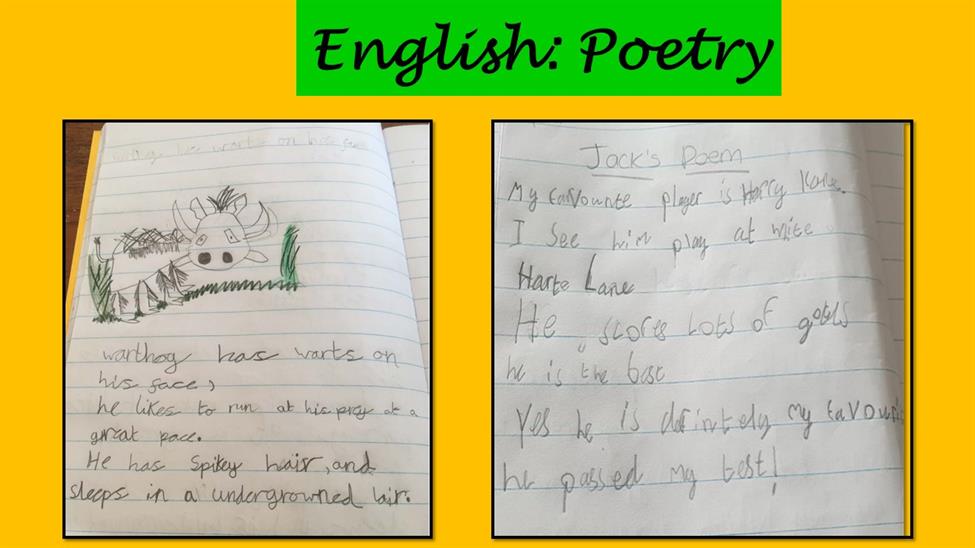 English: Poetry
warthog has warts on his face
warthog has warts on
his face,
he likes to run at his prey at a
great pace.
He has spikey hair, and
sleeps in a undergrowned lair.
Jack's Poem
My favourite player is Harry Kane.
I see him play at wite
Harte Lane
He scores lots of goals
he is the best
Yes he is defintely my favourite
he passed my test!